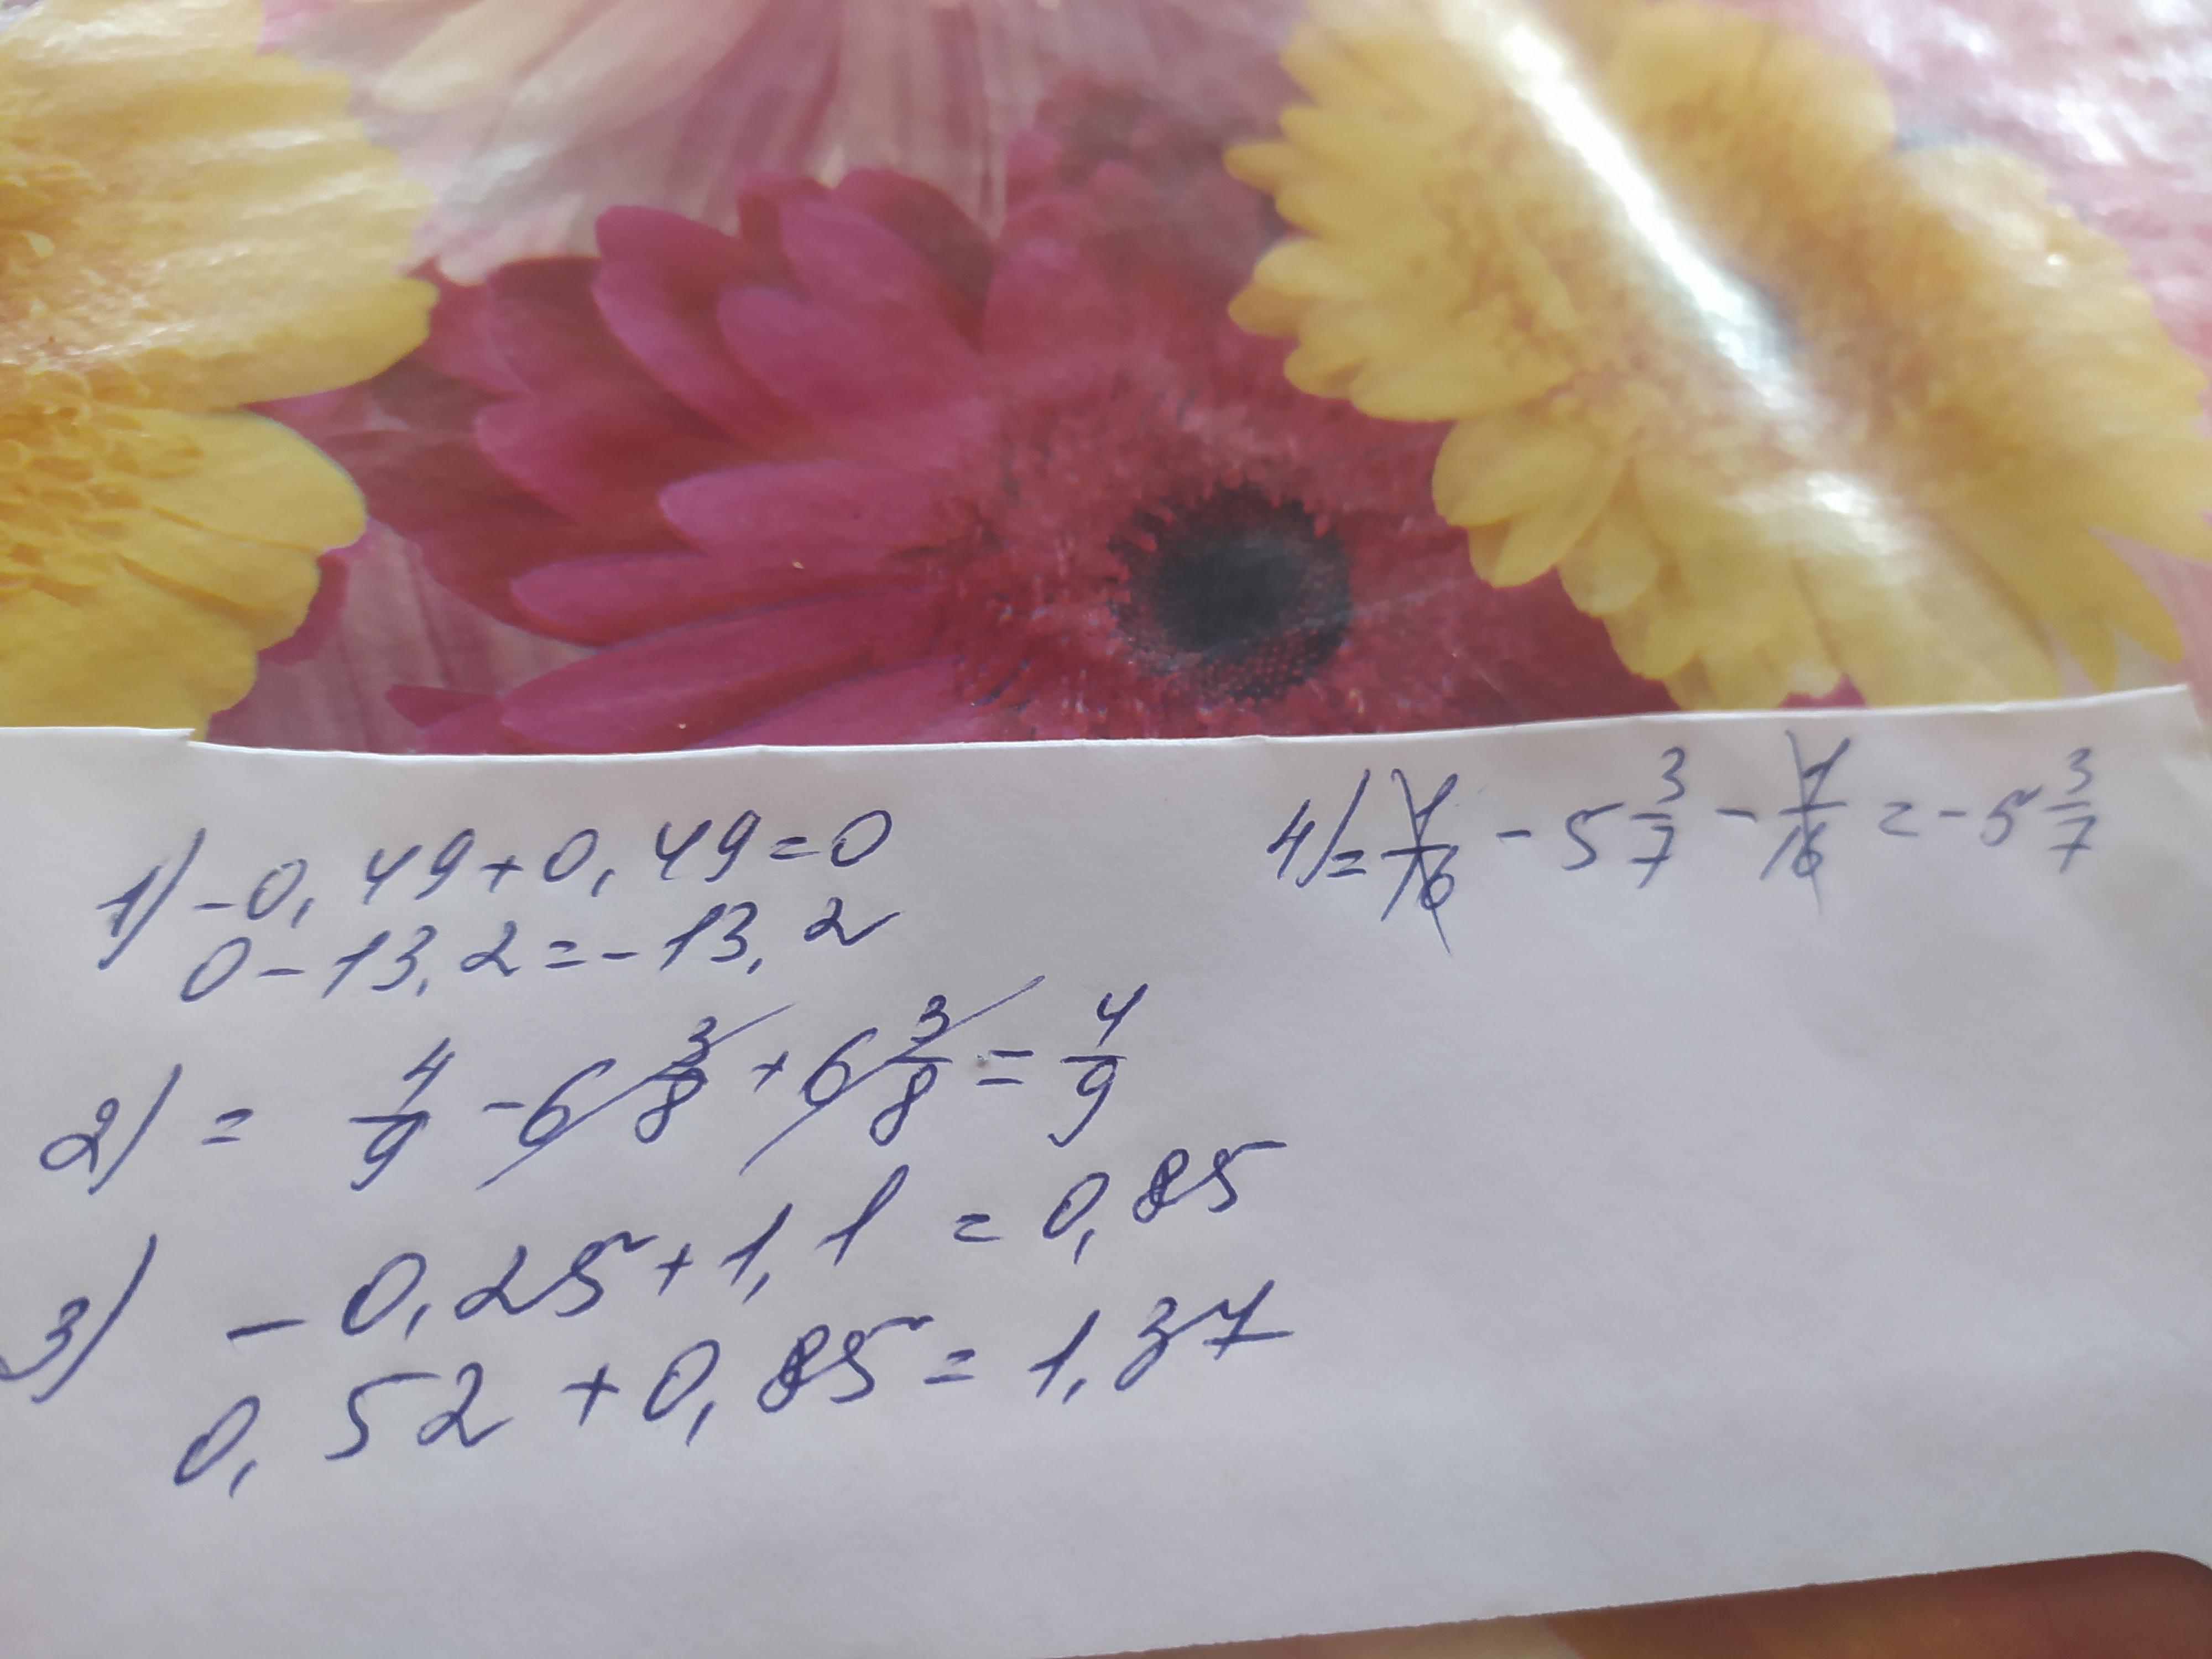 1) -0,49+0,49=0
0-13,2=-13,2
2) = 4/9 - 6 3/8 + 6 3/8 = 4/9
3) -0,25+1,1 = 0,85
0,52+0,85=1,37
4)= 1/16 - 5 3/7 - 1/16 = -5 3/7